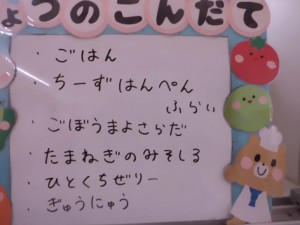 ょうのこんだて
・ごはん
・ちーずはんぺん
ふらい
・ごぼうまよさらだ
・たまねぎのみそしる
・ひとくちぜりー
・ぎゅうにゅう